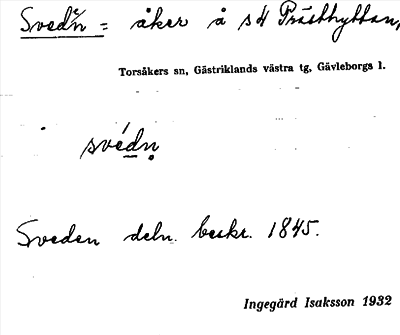 Svedn = åker å s4 Prästhyttan,
Torsåkers sn, Gästriklands västra tg, Gävleborgs l.
svédn
Sveden deln. beskr. 1845.
Ingegärd Isaksson 1932